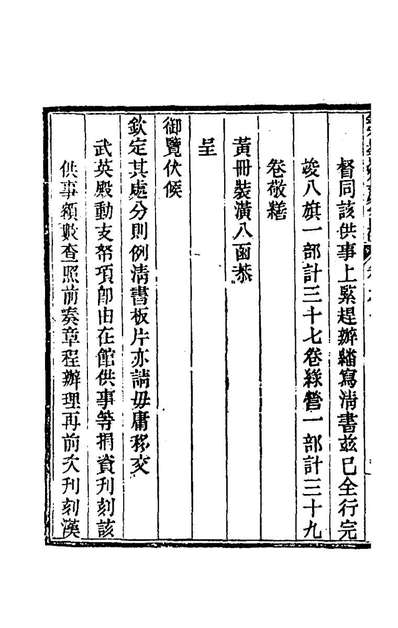 督同該供事上緊趕辦繙寫淸書玆已全行完
竣八旗一部計三十七卷綠營一部計三十九
卷敬繕
黃冊裝潢八函恭
呈
御覽伏候
欽定其處分則例淸書板片亦請毋庸移交
武英殿動支帑項卽由在館供事等捐資刋刻該
供事額數查照前奏章程辦理再前次刋刻漢